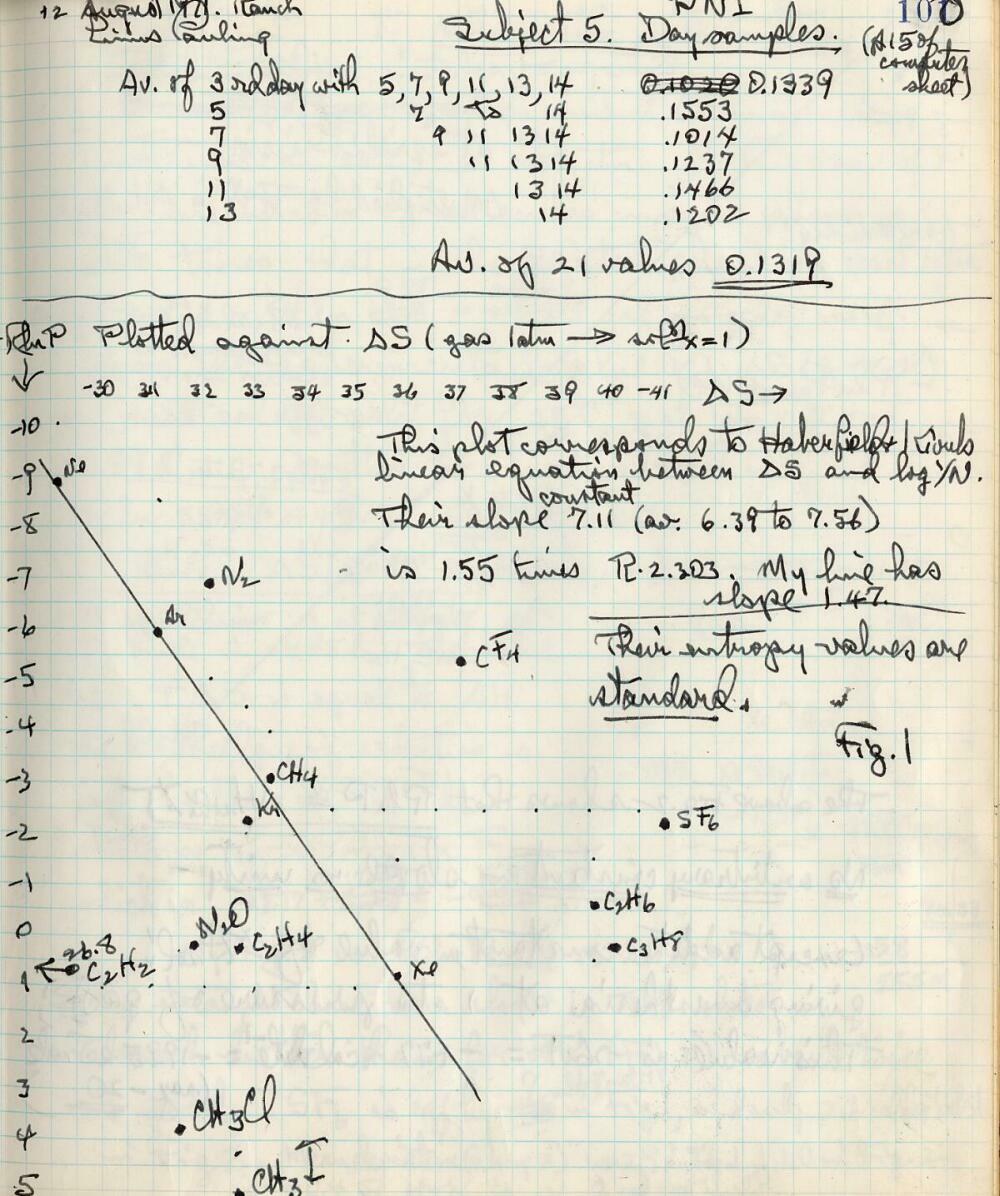 12 August 197 . Ranch
Linus Pauling
Subject 5. Day samples.
(A15 of computer sheet)
Av. of 3rd day with 5, 7, 9, 11, 13, 14 0.1020 0.1339
5 7 to 14 .1553
7 9 11 13 14 .1014
9 11 13 14 .1237
11 13 14 .1466
13 14 .1202
Av. of 21 values 0.1319
RlnP Plotted against ΔS (gas 1 atm → x=1)
-30 31 32 33 34 35 36 37 38 39 40 -41 ΔS →
-10
This plot corresponds to
linear equation between ΔS and log 1/N.
-9 Ne
constant
Their slope 7.11 (av. 6.39 to 7.56)
-8
is 1.55 times R·2.303. My line has
slope 1.47.
-7 N2
Ar
-6
Their entropy values are
standard.
CF4
-5
-4
Fig. 1
-3 CH4
Kr
-2 SF6
-1
C2H6
0 N2O
C2H4 C3H8
26.8
← C2H2
1 Xe
2
3
CH3Cl
4
CH3I
5